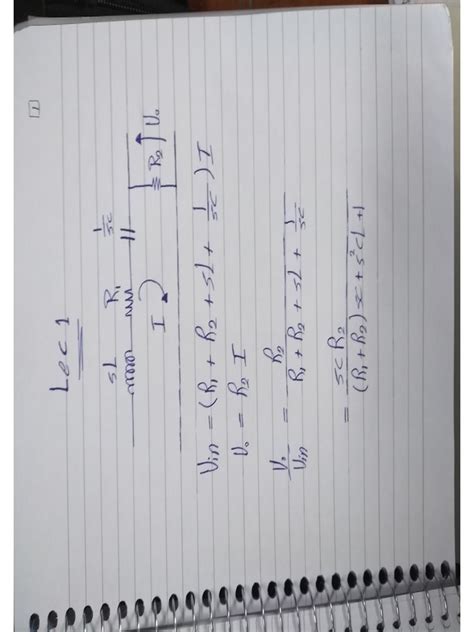 1
Lec 1
sL R₁ 1/sC
I
R₂ V₀
Vin = (R₁ + R₂ + sL + 1/sC) I
V₀ = R₂ I
V₀/Vin = R₂/(R₁ + R₂ + sL + 1/sC)
= sCR₂/((R₁ + R₂) + s²CL + 1)